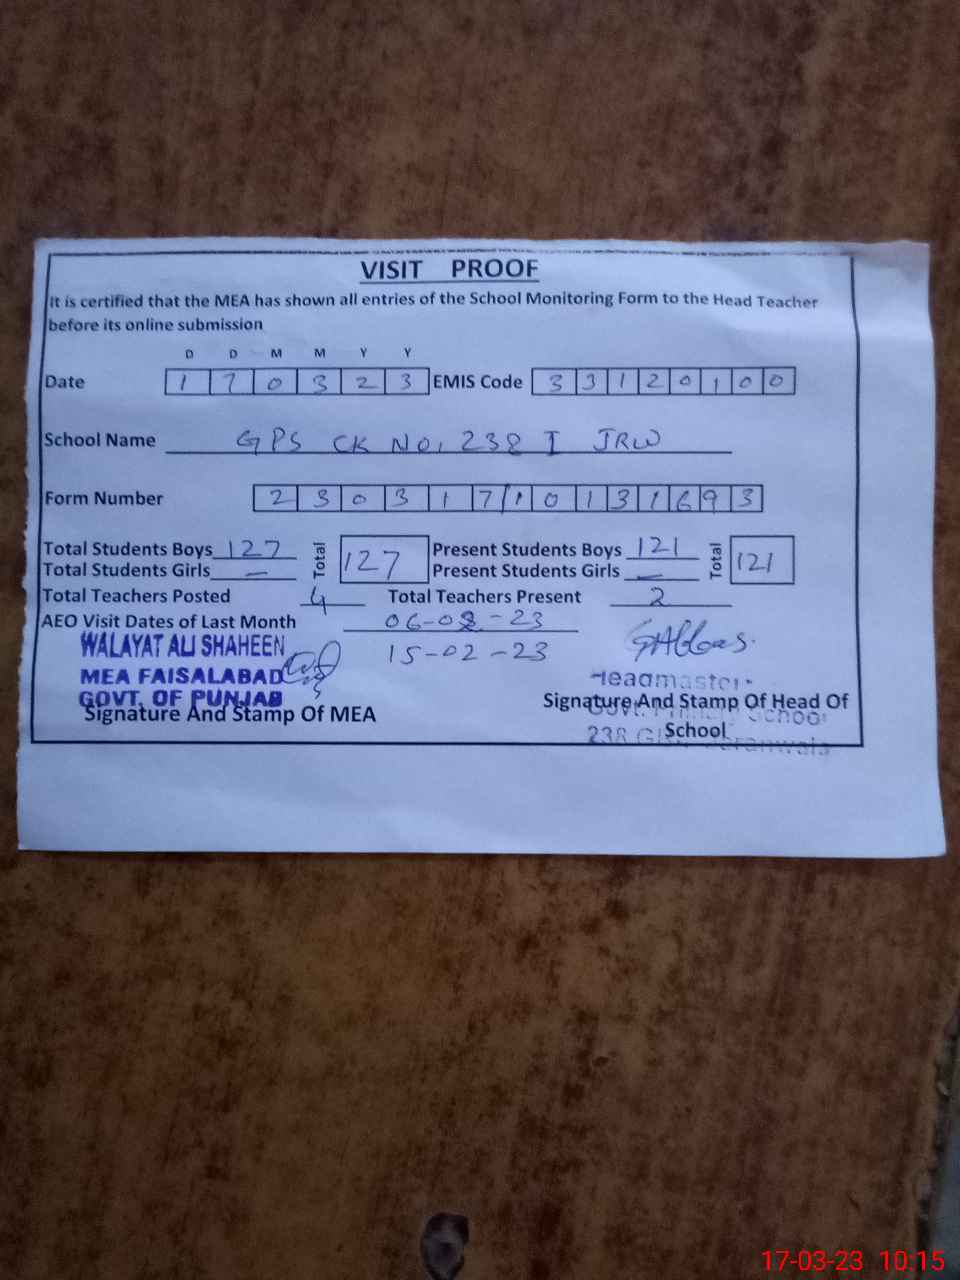 VISIT PROOF
It is certified that the MEA has shown all entries of the School Monitoring Form to the Head Teacher
before its online submission
D D M M Y Y
Date 1 7 0 3 2 3 EMIS Code 3 3 1 2 0 1 0 0
School Name GPS CK NO, 238 I JRW
Form Number 2 3 0 3 1 7 1 0 1 3 1 6 9 3
Total Students Boys 127 Total 127 Present Students Boys 121 Total 121
Total Students Girls — Present Students Girls —
Total Teachers Posted 4 Total Teachers Present 2
AEO Visit Dates of Last Month 06-02-23
15-02-23
WALAYAT ALI SHAHEEN
MEA FAISALABAD
GOVT. OF PUNJAB
Signature And Stamp Of MEA
Headmaster
Signature And Stamp Of Head Of
School
Govt. Primary School
238
17-03-23 10:15